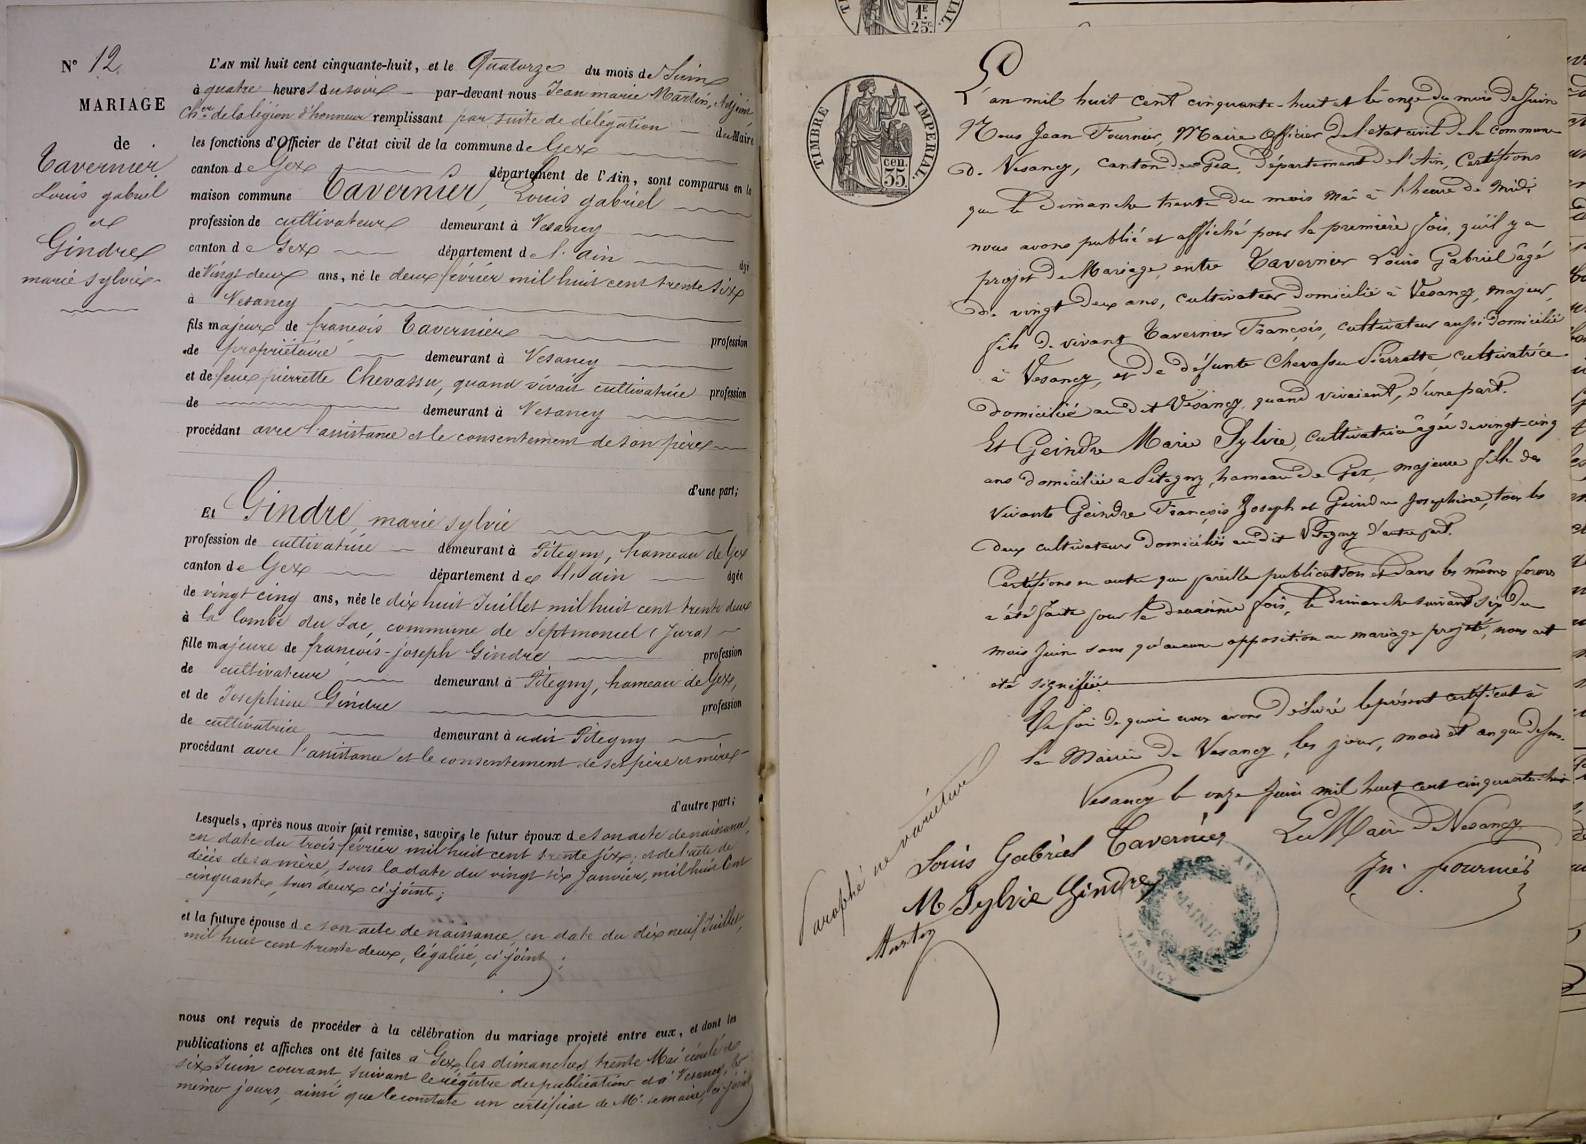 N° 12
MARIAGE
de
Tavernier
Louis gabriel
et
Gindre
marie sylvie
L'AN mil huit cent cinquante-huit, et le Quatorze du mois de Juin
à quatre heures du soir par-devant nous Jean marie Martin, Adjoint
Cher de la légion d'honneur remplissant par suite de délégation du Maire
les fonctions d'Officier de l'état civil de la commune de Gex
canton de Gex département de l'Ain, sont comparus en la
maison commune Tavernier, Louis gabriel
profession de cultivateur demeurant à Vesancy
canton de Gex département de l'ain âgé
de vingt deux ans, né le deux février mil huit cent trente six
à Vesancy
fils majeur de françois Tavernier profession
de propriétaire demeurant à Vesancy
et de feue pierrette Chevassu, quand vivait cultivatrice profession
de demeurant à Vesancy
procédant avec l'assistance et le consentement de son père
d'une part;
Et Gindre, marie sylvie
profession de cultivatrice demeurant à Pitegny, hameau de Gex
canton de Gex département de l'ain âgée
de vingt cinq ans, née le dix huit Juillet mil huit cent trente deux
à la Combe du Lac, commune de Septmoncel (Jura)
fille majeure de françois-joseph Gindre profession
de cultivateur demeurant à Pitegny, hameau de Gex,
et de Josephine Gindre profession
de cultivatrice demeurant à udit Pitegny
procédant avec l'assistance et le consentement de ses père et mère
d'autre part;
Lesquels, après nous avoir fait remise, savoir: le futur époux de son acte de naissance,
en date du trois février mil huit cent trente six; et de l'acte de
décès de sa mère, sous la date du vingt six Janvier, mil huit Cent
cinquante, tous deux ci joints;
et la future épouse de son acte de naissance, en date du dix neuf Juillet,
mil huit cent trente deux, légalisé, ci joint;
nous ont requis de procéder à la célébration du mariage projeté entre eux, et dont les
publications et affiches ont été faites à Gex, les dimanches trente Mai écoulé et
six Juin courant suivant le régistre des publications et à Vesancy, les
mêmes jours, ainsi que le constate un certificat de Mr le maire, ci joint
1F
25c
TIMBRE IMPERIAL
cen.
35
L'an mil huit cent cinquante-huit et le onze du mois de Juin
Nous Jean Fournier, Maire Officier de l'état civil de la commune
de Vesancy, canton de Gex, département de l'Ain, Certifions
que le Dimanche trente du mois Mai à l'heure de midi
nous avons publié et affiché pour la première fois, qu'il y a
projet de Mariage, entre Tavernier Louis Gabriel âgé
de vingt deux ans, cultivateur domicilié à Vesancy, majeur,
fils de vivant Tavernier François, cultivateur aussi domicilié
à Vesancy, et de défunte Chevassu Pierrette, cultivatrice
domiciliée au dit Vesancy, quand vivaient, d'une part.
Et Geindre Marie Sylvie, cultivatrice âgée de vingt-cinq
ans domiciliée à Pitegny, hameau de Gex, majeure fille des
vivants Geindre François Joseph et Geindre Josephine, tous les
deux cultivateurs domiciliés au dit Pitegny d'autre part.
Certifions en outre que pareille publication et dans les mêmes formes
a été faite pour la deuxième fois, le dimanche suivant six du
mois Juin sans qu'aucune opposition au mariage projeté, nous ait
été signifiée
En foi de quoi nous avons délivré le présent certificat à
la Mairie de Vesancy, les jour, mois et an que dessus.
Vesancy le onze Juin mil huit cent cinquante-huit
Le Maire de Vesancy
Jn. Fournier
Louis Gabriel Tavernier
M Sylvie Gindre
Paraphé ne varietur
Martin
MAIRIE
VESANCY
AIN